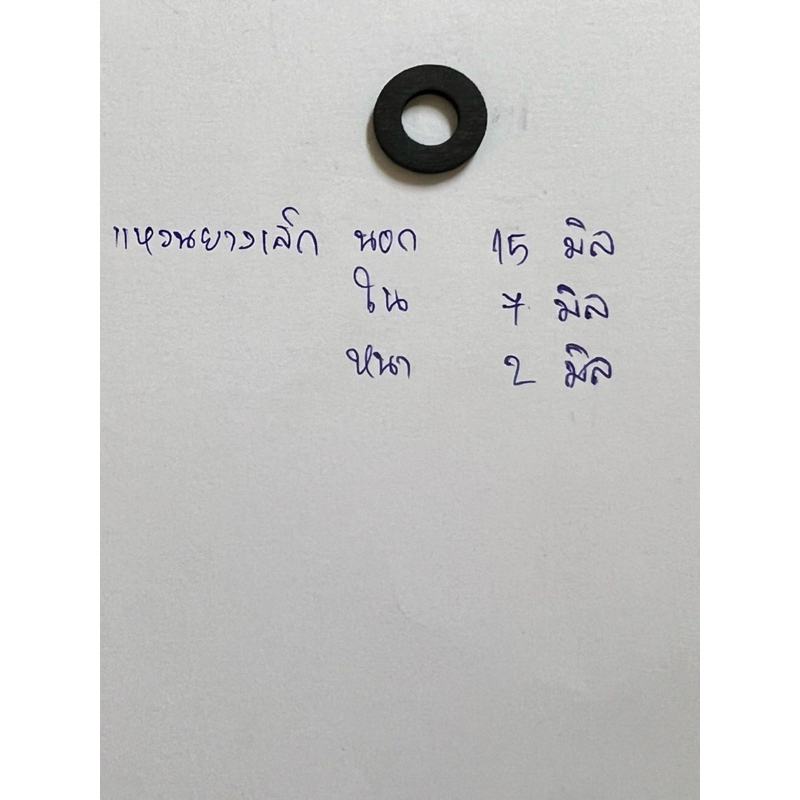 แหวนยางเล็ก นอก 15 มิล
ใน 7 มิล
หนา 2 มิล